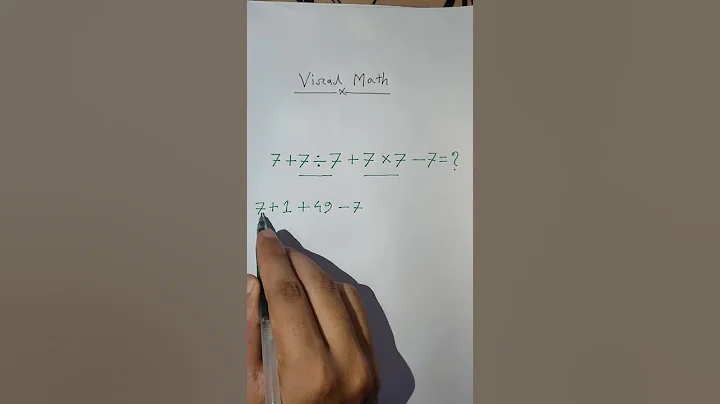 Viral Math
x
7+7÷7+7×7-7=?
7+1+49-7